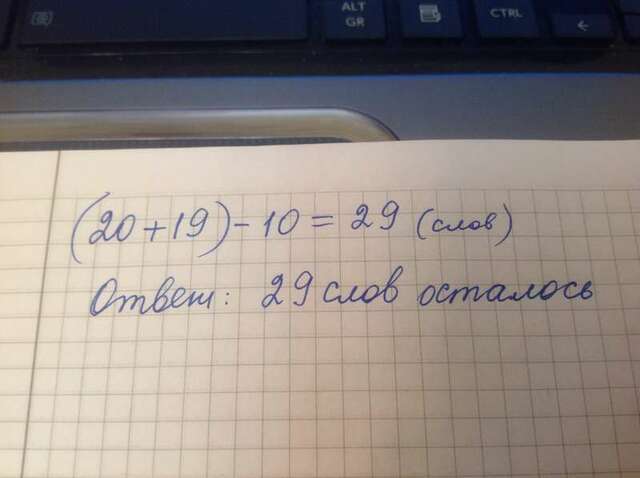 ALT
GR
CTRL
(20+19)-10=29 (слов)
Ответ: 29 слов осталось